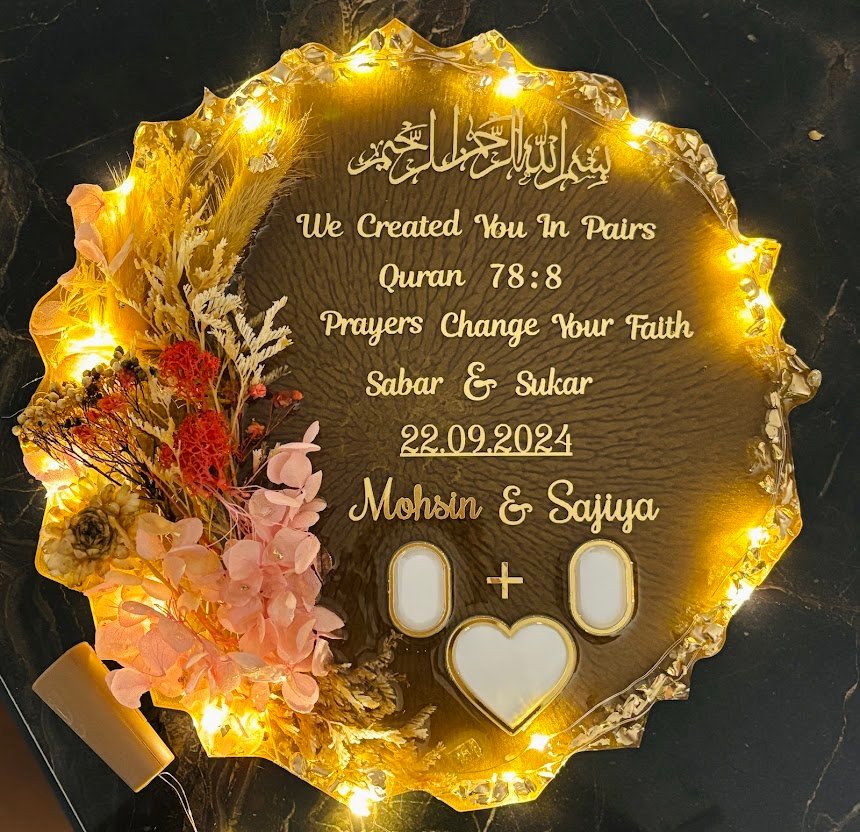 بسم الله الرحمن الرحيم
We Created You In Pairs
Quran 78:8
Prayers Change Your Faith
Sabar & Sukar
22.09.2024
Mohsin & Sajiya
+